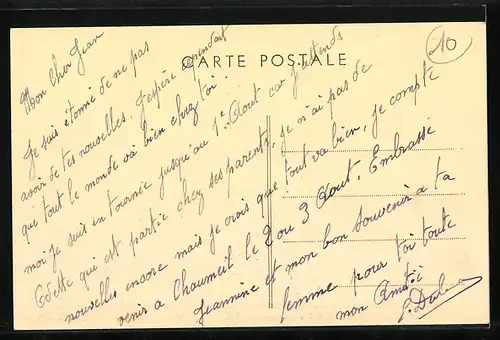 CARTE POSTALE
10
Mon cher Jean
Je suis étonné de ne pas
avoir de tes nouvelles. J'espère cependant
que tout le monde va bien chez toi.
moi je suis en tournée jusqu'au 1er Aout car j'attends
Odette qui est partie chez ses parents, je n'ai pas de
nouvelles encore mais je crois que tout va bien, je compte
venir à Chaumeil le 2 ou 3 Aout. Embrasse
Jeannine et mon bon souvenir à ta
femme pour toi toute
mon Amitié